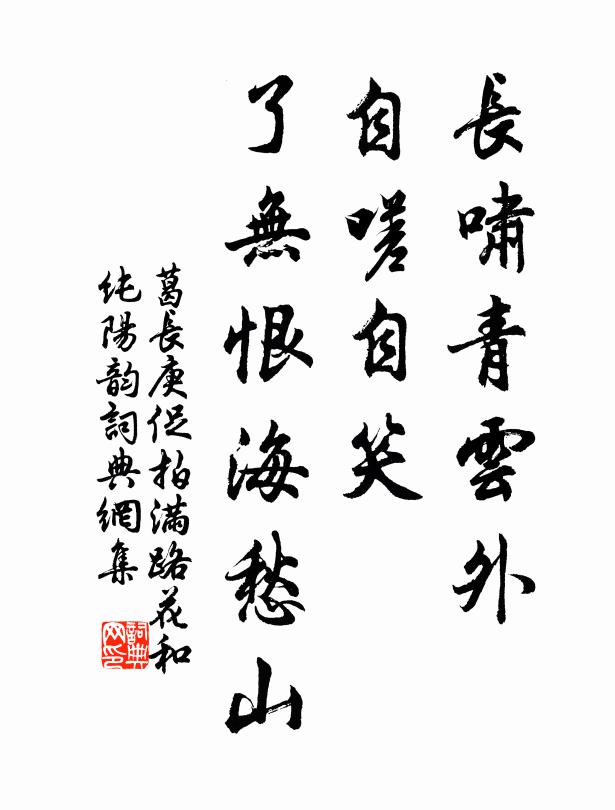 長嘯青雲外
自嗟自笑
了無恨海愁山
葛長庚促拍滿路花和
纯陽韵詞典網集
詞典
网印